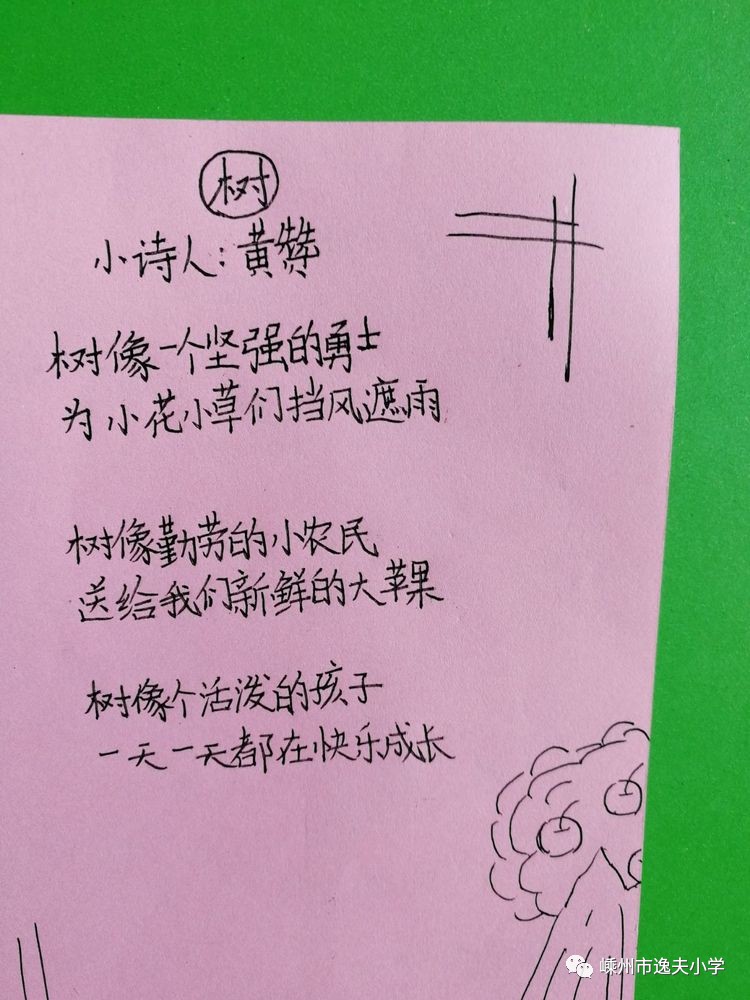 树
小诗人：黄赞
树像一个坚强的勇士
为小花小草们挡风遮雨
树像勤劳的小农民
送给我们新鲜的大苹果
树像个活泼的孩子
一天一天都在快乐成长
嵊州市逸夫小学